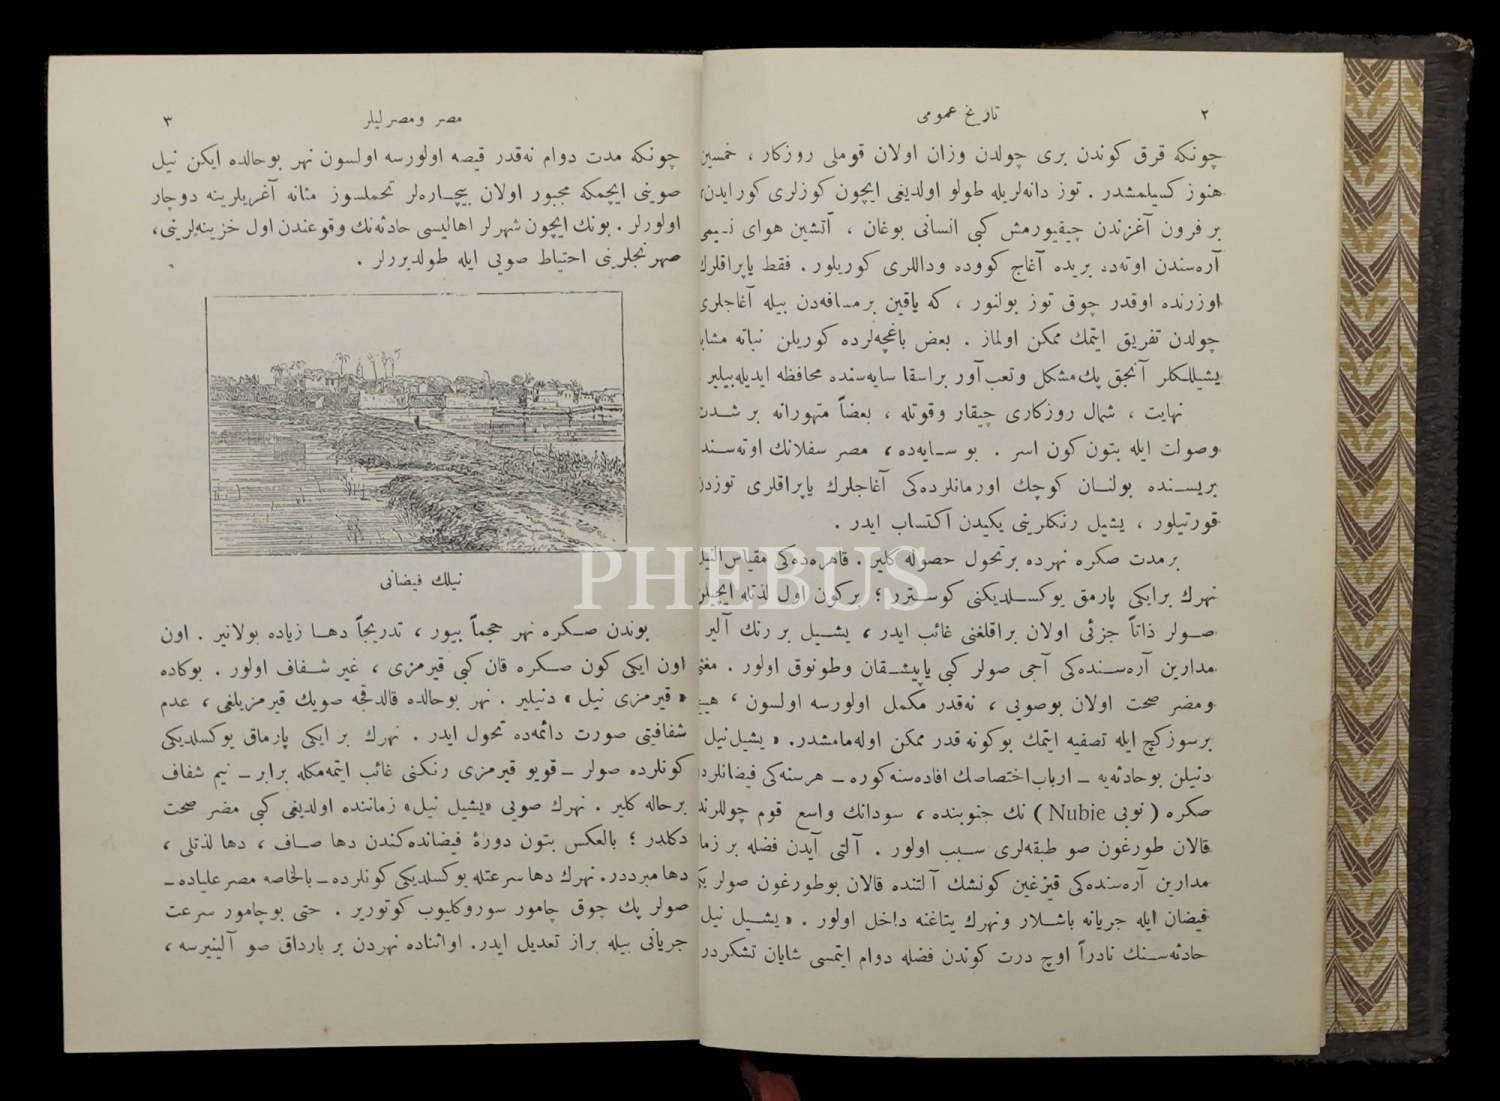 ٢
تاریخ عمومی
چونکه قرق کوندن بری چولدن وزان اولان قوملی روزکار ، خمسین
هنوز کسیلمشدر . توز دانه‌لریله طولو اولدیغی ایچون کوزلری کور ایدن
بر فرون آغزندن چیقیورمش کبی انسانی بوغان ، آتشین هوای نسیمی
آره‌سندن اوته‌ده بریده آغاج کووده ودالاری کوریلور . فقط یاپراقلرك
اوزرنده اوقدر چوق توز بولنور ، که یاقین بر مسافه‌دن بیله آغاجلری
چولدن تفریق ایتمك ممکن اولماز . بعض باغچه‌لرده کوریلن نباته مشابه
یشیللکلر آنجق پك مشکل وتعب‌آور بر اسقا سایه‌سنده محافظه ایدیله‌بیلیر
نهایت ، شمال روزکاری چیقار وقوتله ، بعضاً متهورانه بر شدت
وصولت ایله بتون کون اسر . بو سایه‌ده ، مصر سفلانك اوته‌سنده
بریسنده بولنان کوچك اورمانلرده‌کی آغاجلرك یاپراقلری توزدن
قورتیلور ، یشیل رنکلرینی یکیدن اکتساب ایدر .
بر مدت صکره نهرده بر تحول حصوله کلیر . قاهره‌ده‌کی مقیاس النیل
نهرك بر ایکی پارمق یوکسلدیکنی کوسترر ؛ بر کون اول لذتله ایچیلن
صولر ذاتاً جزئی اولان براقلغنی غائب ایدر ، یشیل بر رنك آلیر
مدارین آره‌سنده‌کی آجی صولر کبی یاپیشقان وطونوق اولور . مغثی
ومضر صحت اولان بوصویی ، نه‌قدر مکمل اولورسه اولسون ، هیچ
بر سوزکچ ایله تصفیه ایتمك بوکونه قدر ممکن اوله‌مامشدر. « یشیل نیل
دنیلن بو حادثه‌یه ــ ارباب اختصاصك افاده‌سنه کوره ــ هر سنه‌کی فیضانلردن
صکره ( نوبی Nubie ) نك جنوبنده ، سودانك واسع قوم چوللرنده
قالان طورغون صو طبقه‌لری سبب اولور . آلتی آیدن فضله بر زمان
مدارین آره‌سنده‌کی قیزغین کونشك آلتنده قالان بو طورغون صولر یکی
فیضان ایله جریانه باشلار ونهرك یتاغنه داخل اولور . « یشیل نیل
حادثه‌سنك نادراً اوچ درت کوندن فضله دوام ایتمسی شایان تشکردر
مصر ومصرلیلر
٣
چونکه مدت دوام نه‌قدر قیصه اولورسه اولسون نهر بوحالده ایکن نیل
صوینی ایچمکه مجبور اولان بیچاره‌لر تحملسوز مثانه آغریلرینه دوچار
اولورلر . بونك ایچون شهرلر اهالیسی حادثه‌نك وقوعندن اول خزینه‌لرینی،
صهرنجلرینی احتیاط صویی ایله طولدیررلر .
نیلك فیضانی
بوندن صکره نهر حجماً بیور ، تدریجاً دها زیاده بولانیر . اون
اون ایکی کون صکره قان کبی قیرمزی ، غیر شفاف اولور . بوکاده
« قیرمزی نیل » دنیلیر . نهر بوحالده قالدقجه صویك قیرمزیلغی ، عدم
شفافیتی صورت دائمه‌ده تحول ایدر . نهرك بر ایکی پارماق یوکسلدیکی
کونلرده صولر ــ قویو قیرمزی رنکنی غائب ایتمه‌مکله برابر ــ نیم شفاف
بر حاله کلیر . نهرك صویی «یشیل نیل» زماننده اولدیغی کبی مضر صحت
دکلدر ؛ بالعکس بتون دورۀ فیضانده‌کندن دها صاف ، دها لذتلی ،
دها مبرددر. نهرك دها سرعتله یوکسلدیکی کونلرده ــ بالخاصه مصر علیاده ــ
صولر پك چوق چامور سوروکلیوب کوتوریر . حتی بو چامور سرعت
جریانی بیله براز تعدیل ایدر. اواثناده نهردن بر بارداق صو آلینیرسه ،
PHEBUS